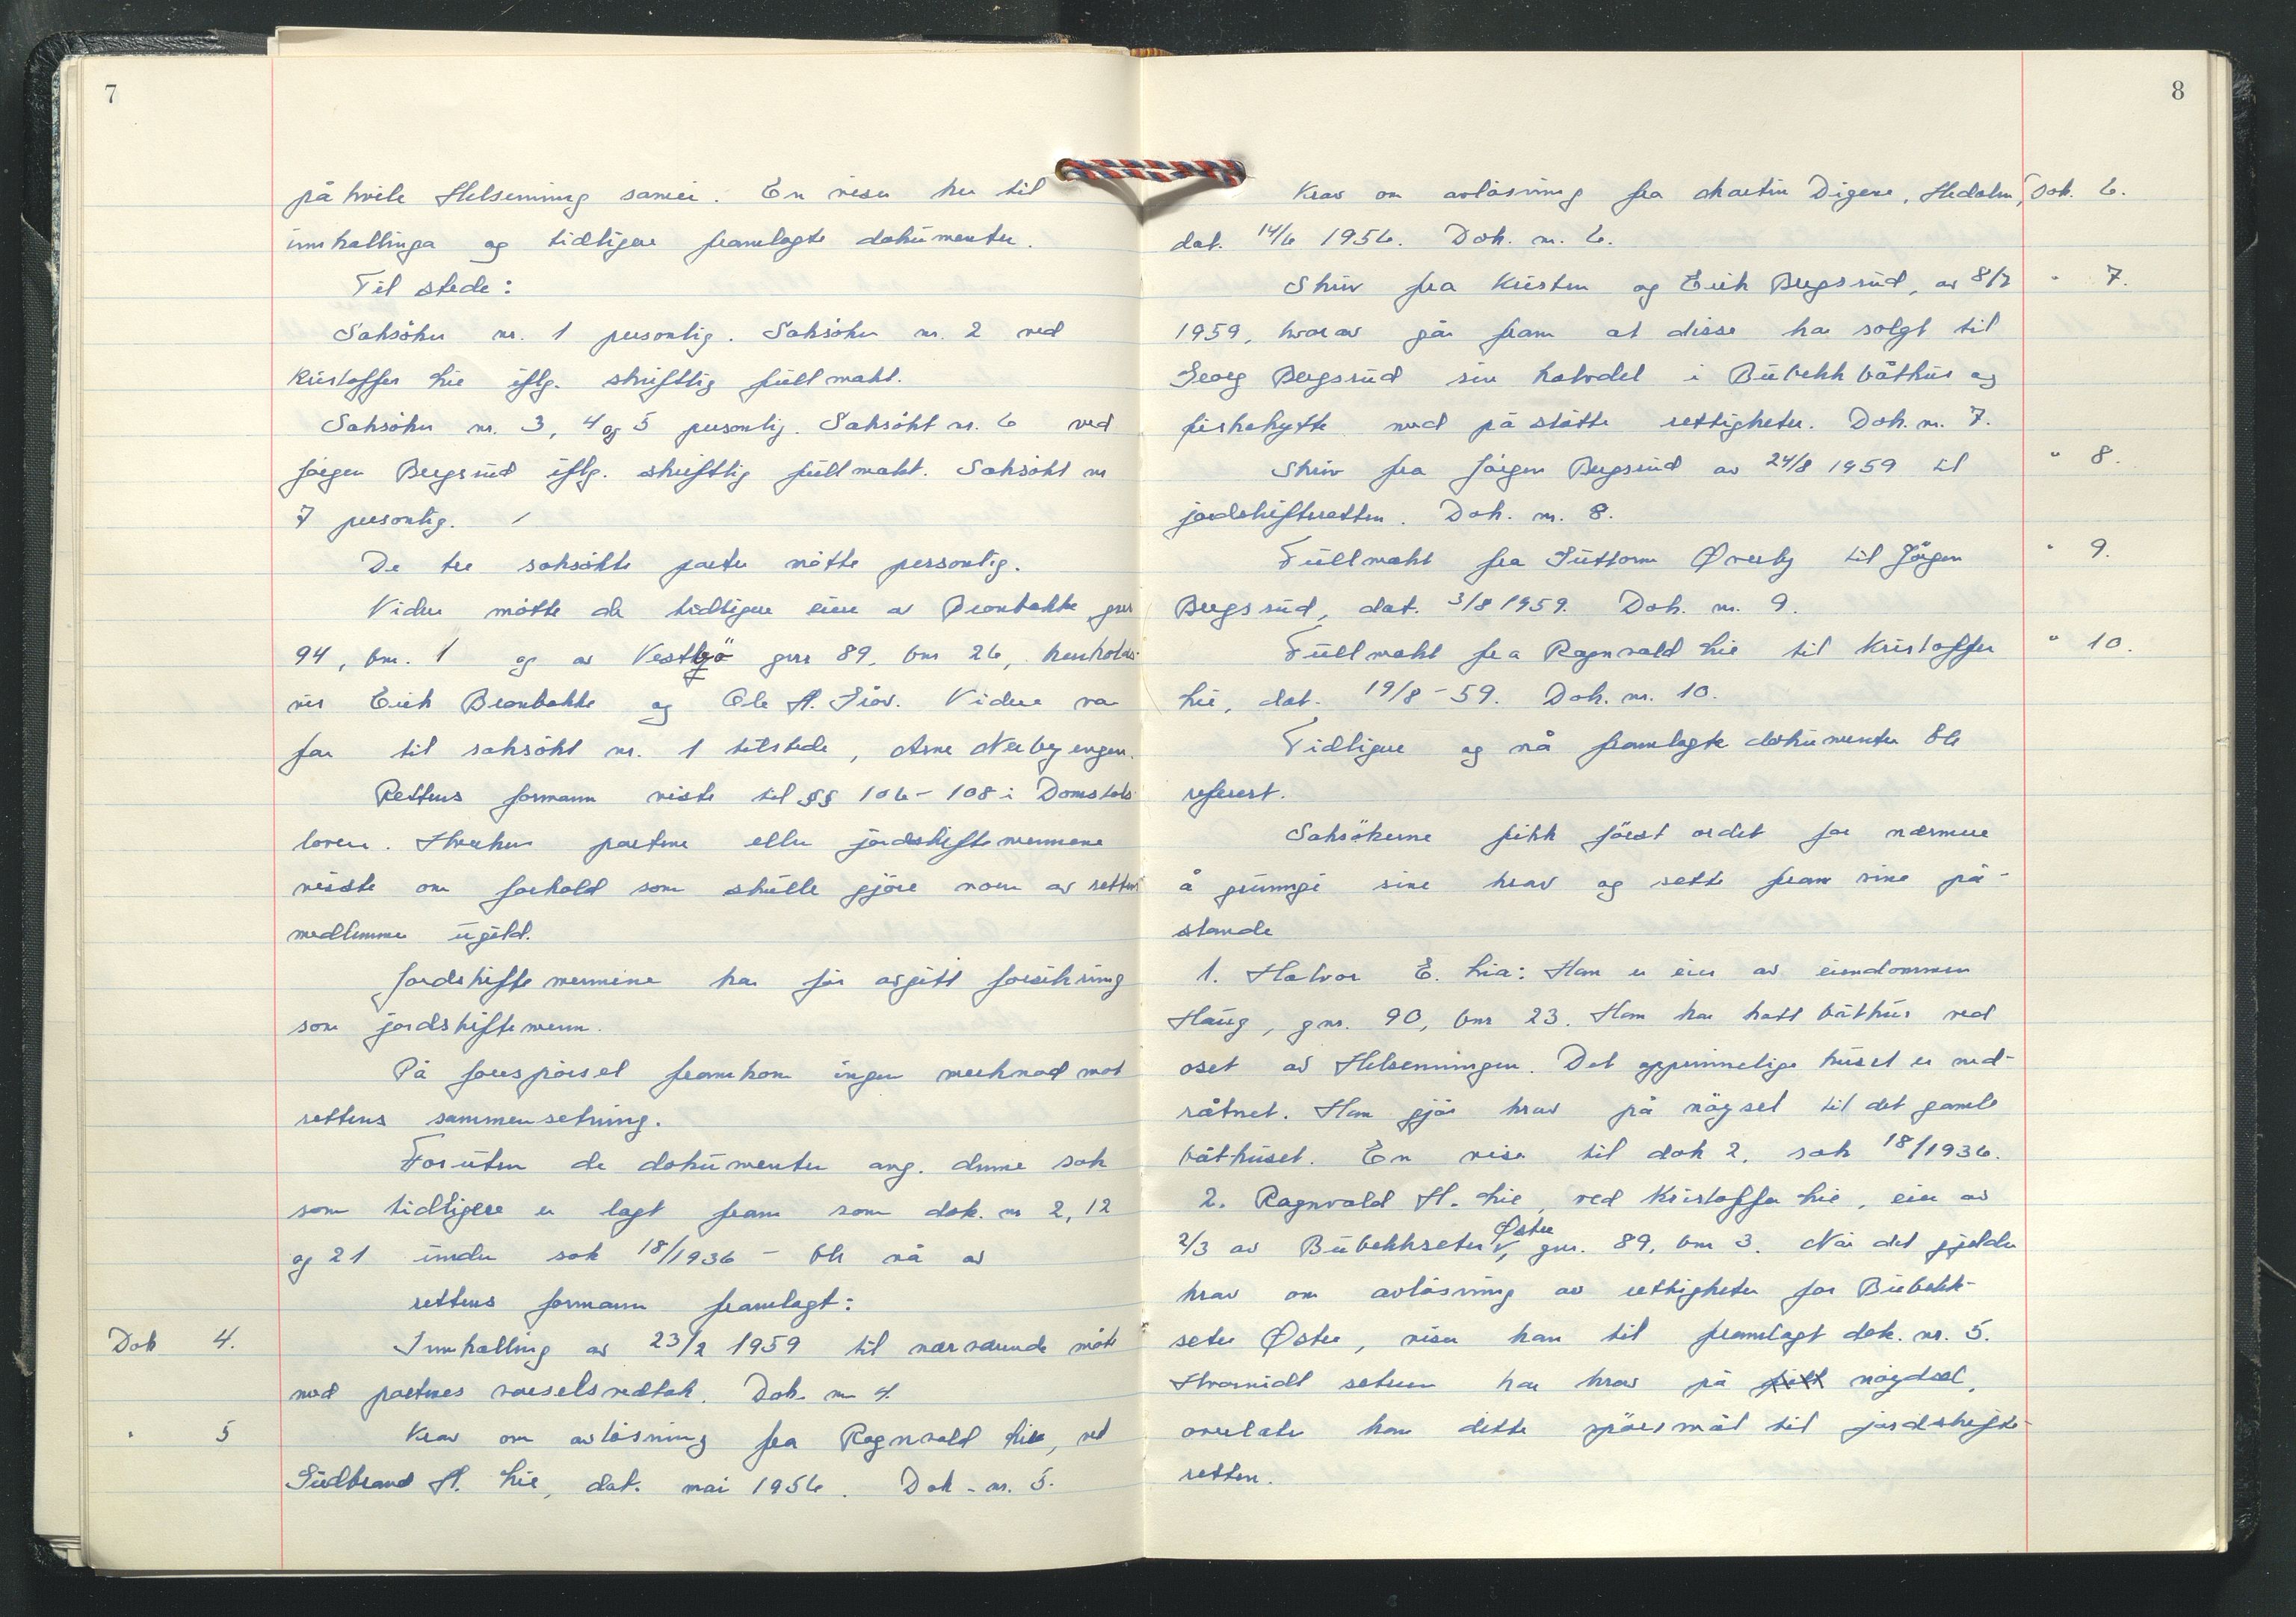 7
på hvile Helsenning sameie. En viser her til
innkallinga og tidligere framlagte dokumenter.
Til stede:
Saksöker nr. 1 personlig. Saksöker nr. 2 ved
Kristoffer Lie iflg. skriftlig fullmakt.
Saksöker nr. 3, 4 og 5 personlig. Saksökt nr. 6 ved
Jörgen Bergsrud iflg. skriftlig fullmakt. Saksökt nr
7 personlig.
De tre saksökte parter mötte personlig.
Videre mötte de tidligere eiere av Bronbakke gnr
94, bnr. 1 og av Vestbö gnr 89, bnr 26, henholds-
vis Erik Bronbakke og Ole H. Siöv. Videre var
far til saksökt nr. 1 tilstede, Arne Nerbyengen.
Rettens formann viste til §§ 106-108 i Domstols-
loven. Hverken partene eller jordskiftemennene
visste om forhold som skulle gjöre noen av rettens
medlemmer ugild.
Jordskiftemennene har för avgitt forsikring
som jordskiftemenn.
På forespörsel framkom ingen merknad mot
rettens sammensetning.
Foruten de dokumenter ang. denne sak
som tidligere er lagt fram som dok. nr 2, 12
og 21 under sak 18/1936 - ble nå av
rettens formann framlagt:
Dok 4.
Innkalling av 23/2 1959 til nærværende möte
med partenes varselsvedtak. Dok. nr 4.
" 5
Krav om avlösning fra Ragnvald Lie, ved
Gudbrand H. Lie, dat. mai 1956. Dok. nr. 5.
8
Krav om avlösning fra Martin Digere, Hedalen, Dok. 6.
dat. 14/6 1956. Dok. nr. 6.
Skriv fra Kristen og Erik Bergsrud, av 8/7 " 7.
1959, hvorav går fram at disse har solgt til
Georg Bergsrud sin halvdel i Bubekk båthus og
fiskehytte med påståtte rettigheter. Dok. nr. 7.
Skriv fra Jörgen Bergsrud av 24/8 1959 til " 8.
jordskifteretten. Dok. nr. 8.
Fullmakt fra Guttorm Øverby til Jörgen " 9.
Bergsrud, dat. 3/8 1959. Dok. nr. 9.
Fullmakt fra Ragnvald Lie til Kristoffer " 10.
Lie, dat. 19/8-59. Dok. nr. 10.
Tidligere og nå framlagte dokumenter ble
referert.
Saksökerne fikk först ordet for nærmere
å grunngi sine krav og sette fram sine på-
stander
1. Halvor E. Lia: Han er eier av eiendommen
Haug, gnr. 90, bnr 23. Han har hatt båthus ved
oset av Helsenningen. Det opprinnelige huset er ned-
råtnet. Han gjör krav på nöysel til det gamle
båthuset. En viser til dok 2, sak 18/1936.
2. Ragnvald H. Lie, ved Kristoffer Lie, eier av
2/3 av Bubekkseter Østre, gnr. 89, bnr 3. Når det gjelder
krav om avlösning av rettigheter for Bubekk-
seter Østre, viser han til framlagt dok. nr. 5.
Hvorvidt seteren har krav på nöydsel,
overlater han dette spörsmål til jordskifte-
retten.